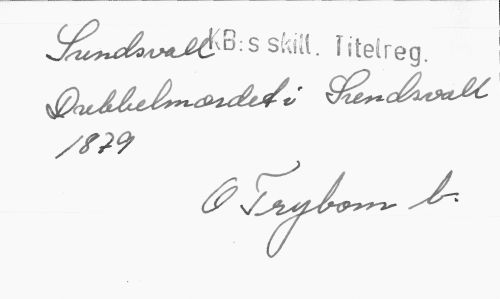 Sundsvall KB:s skill. Titelreg.
Dubbelmordet i Sundsvall
1879
O Trybom b.